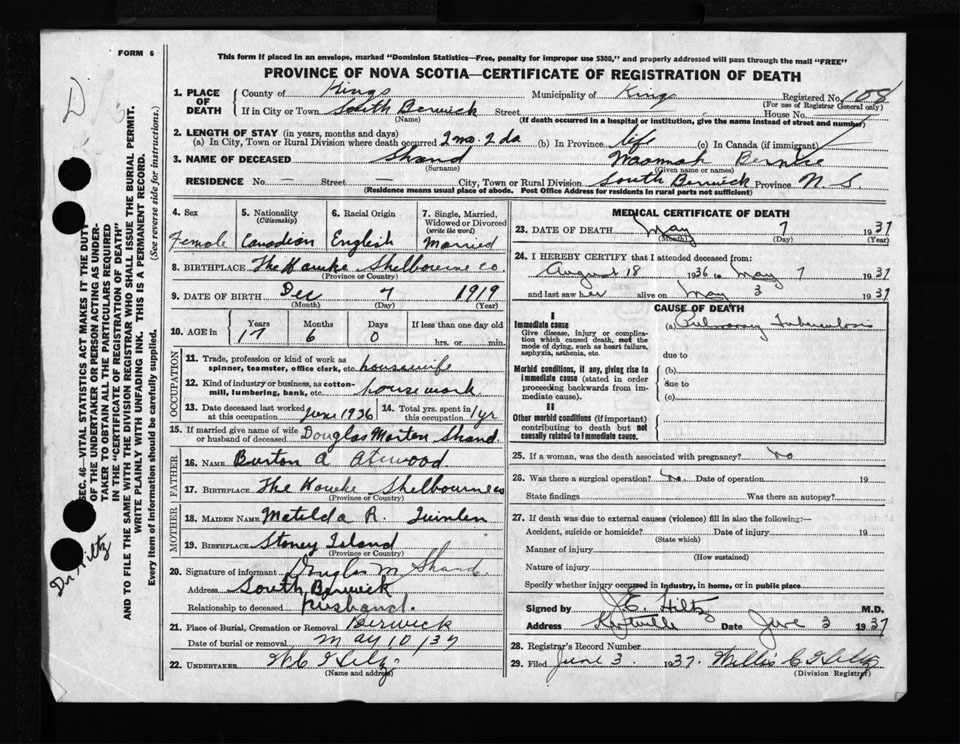 FORM 6
This form if placed in an envelope, marked "Dominion Statistics—Free, penalty for improper use $300," and properly addressed will pass through the mail "FREE"
PROVINCE OF NOVA SCOTIA—CERTIFICATE OF REGISTRATION OF DEATH
D
SEC. 46—VITAL STATISTICS ACT MAKES IT THE DUTY
OF THE UNDERTAKER OR PERSON ACTING AS UNDER-
TAKER TO OBTAIN ALL THE PARTICULARS REQUIRED
IN THE "CERTIFICATE OF REGISTRATION OF DEATH"
AND TO FILE THE SAME WITH THE DIVISION REGISTRAR WHO SHALL ISSUE THE BURIAL PERMIT.
WRITE PLAINLY WITH UNFADING INK. THIS IS A PERMANENT RECORD.
Every item of Information should be carefully supplied. (See reverse side for instructions.)
Dr Hiltz
1. PLACE OF DEATH County of Kings Municipality of Kings Registered No. 108
(For use of Registrar General only)
If in City or Town South Berwick Street House No.
(Name) (If death occurred in a hospital or institution, give the name instead of street and number)
2. LENGTH OF STAY (in years, months and days)
(a) In City, Town or Rural Division where death occurred 2 mo. 2 da (b) In Province life (c) In Canada (if immigrant)
3. NAME OF DECEASED Shand Naomah Bernice
(Surname) (Given name or names)
RESIDENCE No. — Street — City, Town or Rural Division South Berwick Province N S.
(Residence means usual place of abode. Post Office Address for Residents in rural parts not sufficient)
4. Sex 5. Nationality (Citizenship) 6. Racial Origin 7. Single, Married, Widowed or Divorced (write the word)
Female Canadian English Married
8. BIRTHPLACE The Hawke Shelbourne Co.
(Province or Country)
9. DATE OF BIRTH Dec 7 1919
(Month) (Day) (Year)
10. AGE in Years Months Days If less than one day old
17 6 0 hrs. or min.
OCCUPATION
11. Trade, profession or kind of work as
spinner, teamster, office clerk, etc. housewife
12. Kind of industry or business, as cotton-
mill, lumbering, bank, etc. housework
13. Date deceased last worked at this occupation June 1936 14. Total yrs. spent in this occupation 1 yr
15. If married give name of wife
or husband of deceased Douglas Morton Shand
FATHER
16. NAME Burton A Atwood.
17. BIRTHPLACE The Hawke Shelbourne co
(Province or Country)
MOTHER
18. MAIDEN NAME Matilda R.
19. BIRTHPLACE Stoney Island
(Province or Country)
20. Signature of informant Douglas M Shand.
Address South Berwick
Relationship to deceased husband.
21. Place of Burial, Cremation or Removal Berwick
Date of burial or removal May, 10, 37
22. UNDERTAKER
(Name and address)
MEDICAL CERTIFICATE OF DEATH
23. DATE OF DEATH May 7 1937
(Month) (Day) (Year)
24. I HEREBY CERTIFY that I attended deceased from:
August 18 1936 to May 7 1937
and last saw her alive on May 3 1937
CAUSE OF DEATH
I
Immediate cause (a) Pulmonary Tuberculosis
Give disease, injury or complica-
tion which caused death, not the
mode of dying, such as heart failure,
asphyxia, asthenia, etc. due to
Morbid conditions, if any, giving rise to (b)
immediate cause (stated in order due to
proceeding backwards from im-
mediate cause). (c)
II
Other morbid conditions (if important)
contributing to death but not
causally related to immediate cause.
25. If a woman, was the death associated with pregnancy? no
26. Was there a surgical operation? no. Date of operation 19
State findings Was there an autopsy?
27. If death was due to external causes (violence) fill in also the following:—
Accident, suicide or homicide? Date of injury 19
(State which)
Manner of injury
(How sustained)
Nature of injury
Specify whether injury occurred in Industry, in home, or in public place
Signed by J. E. Hiltz M.D.
Address Kentville Date June 3 1937
28. Registrar's Record Number
29. Filed June 3. 1937.
(Division Registrar)